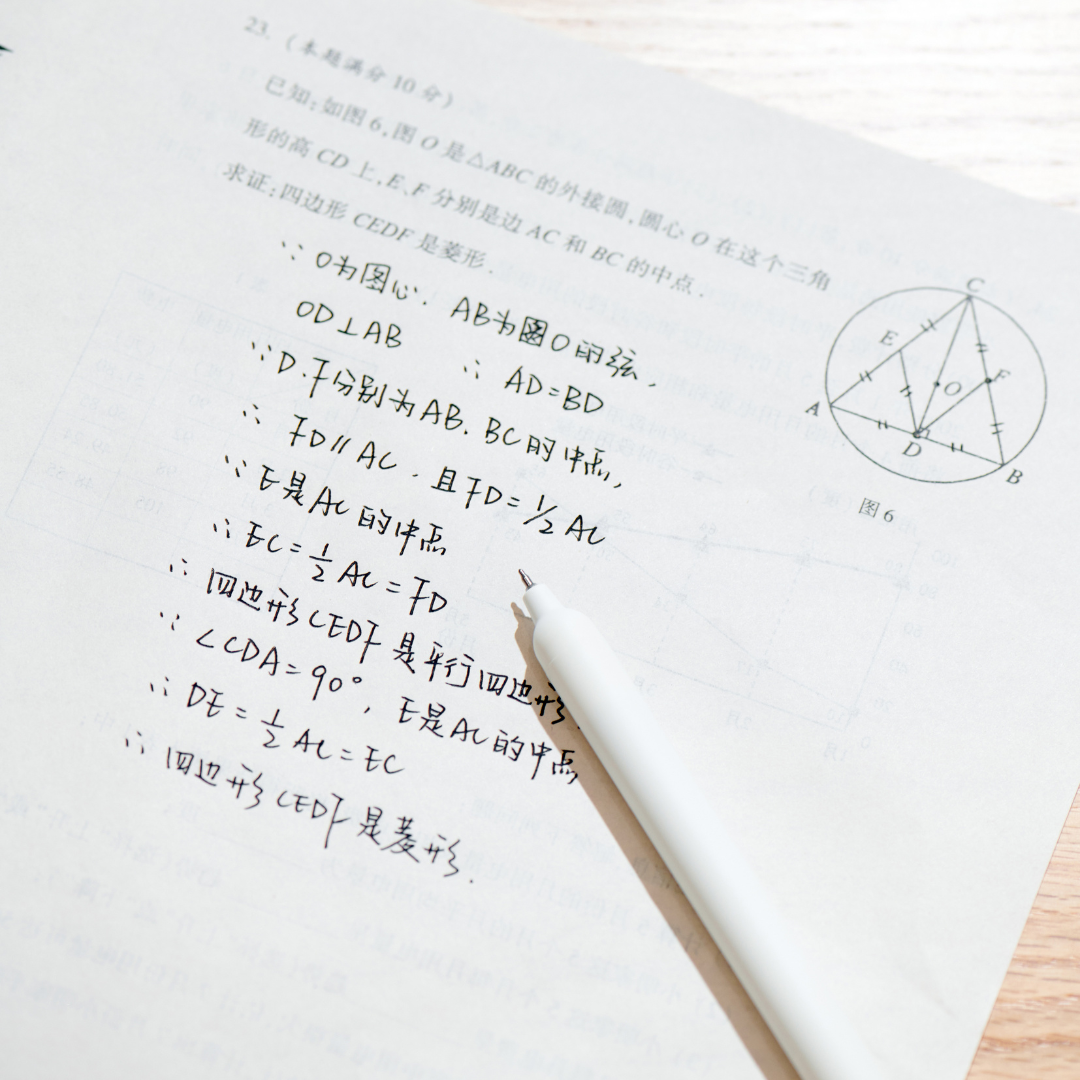 23.(本题满分10分)
已知:如图6,圆O是△ABC的外接圆,圆心O在这个三角
形的高CD上,E、F分别是边AC和BC的中点.
求证:四边形CEDF是菱形.
∵O为圆心.AB为圆O的弦,
OD⊥AB ∴AD=BD
∵D.F分别为AB.BC的中点,
∴FD∥AC.且FD=1/2AC
∵E是AC的中点
∴EC=1/2AC=FD
∴四边形CEDF是平行四边形.
∵∠CDA=90°,E是AC的中点
∴DE=1/2AC=EC
∴四边形CEDF是菱形.
C
E
F
O
A
D
B
图6